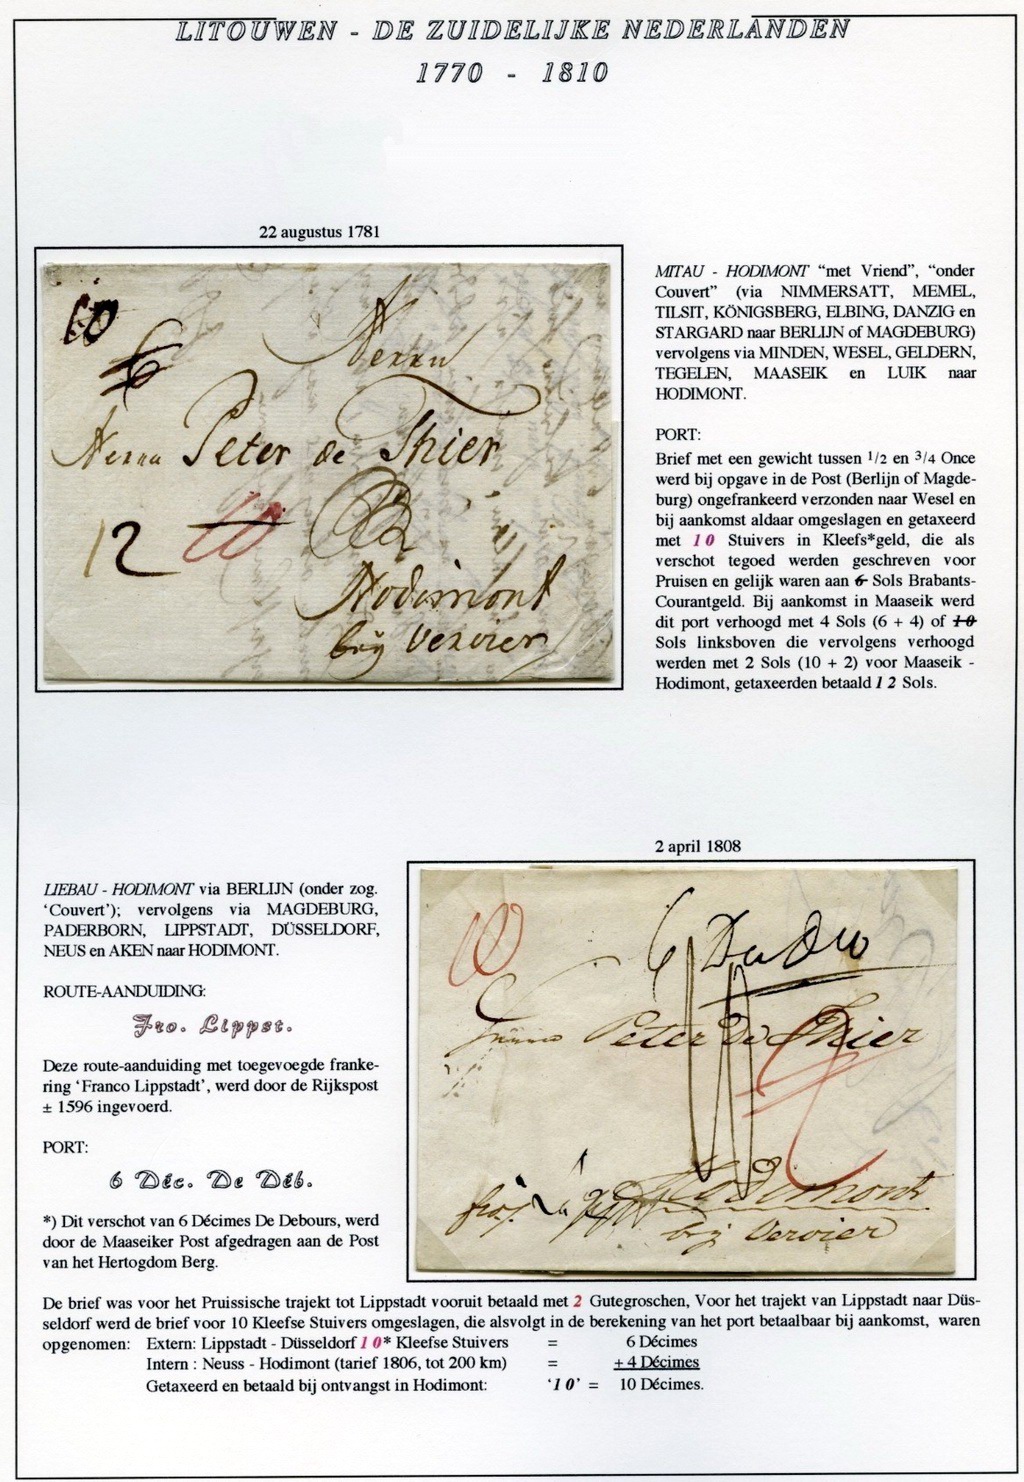 LITOUWEN - DE ZUIDELIJKE NEDERLANDEN
1770 - 1810
22 augustus 1781
10
6
Herrn
Herrn Peter de Thier
12 10
Hodimont
bey Vervier
MITAU - HODIMONT “met Vriend”, “onder
Couvert” (via NIMMERSATT, MEMEL,
TILSIT, KÖNIGSBERG, ELBING, DANZIG en
STARGARD naar BERLIJN of MAGDEBURG)
vervolgens via MINDEN, WESEL, GELDERN,
TEGELEN, MAASEIK en LUIK naar
HODIMONT.
PORT:
Brief met een gewicht tussen 1/2 en 3/4 Once
werd bij opgave in de Post (Berlijn of Magde-
burg) ongefrankeerd verzonden naar Wesel en
bij aankomst aldaar omgeslagen en getaxeerd
met 10 Stuivers in Kleefs*geld, die als
verschot tegoed werden geschreven voor
Pruisen en gelijk waren aan 6 Sols Brabants-
Courantgeld. Bij aankomst in Maaseik werd
dit port verhoogd met 4 Sols (6 + 4) of 10
Sols linksboven die vervolgens verhoogd
werden met 2 Sols (10 + 2) voor Maaseik -
Hodimont, getaxeerden betaald 12 Sols.
2 april 1808
LIEBAU - HODIMONT via BERLIJN (onder zog.
‘Couvert’); vervolgens via MAGDEBURG,
PADERBORN, LIPPSTADT, DÜSSELDORF,
NEUS en AKEN naar HODIMONT.
ROUTE-AANDUIDING:
Fro. Lippst.
Deze route-aanduiding met toegevoegde franke-
ring ‘Franco Lippstadt’, werd door de Rijkspost
± 1596 ingevoerd.
PORT:
6 Déc. De Déb.
*) Dit verschot van 6 Décimes De Debours, werd
door de Maaseiker Post afgedragen aan de Post
van het Hertogdom Berg.
10
6
Peter De Thier
2
Hodimont
bey Vervier
De brief was voor het Pruissische trajekt tot Lippstadt vooruit betaald met 2 Gutegroschen, Voor het trajekt van Lippstadt naar Düs-
seldorf werd de brief voor 10 Kleefse Stuivers omgeslagen, die alsvolgt in de berekening van het port betaalbaar bij aankomst, waren
opgenomen: Extern: Lippstadt - Düsseldorf 10* Kleefse Stuivers = 6 Décimes
Intern : Neuss - Hodimont (tarief 1806, tot 200 km) = + 4 Décimes
Getaxeerd en betaald bij ontvangst in Hodimont: ‘10’ = 10 Décimes.